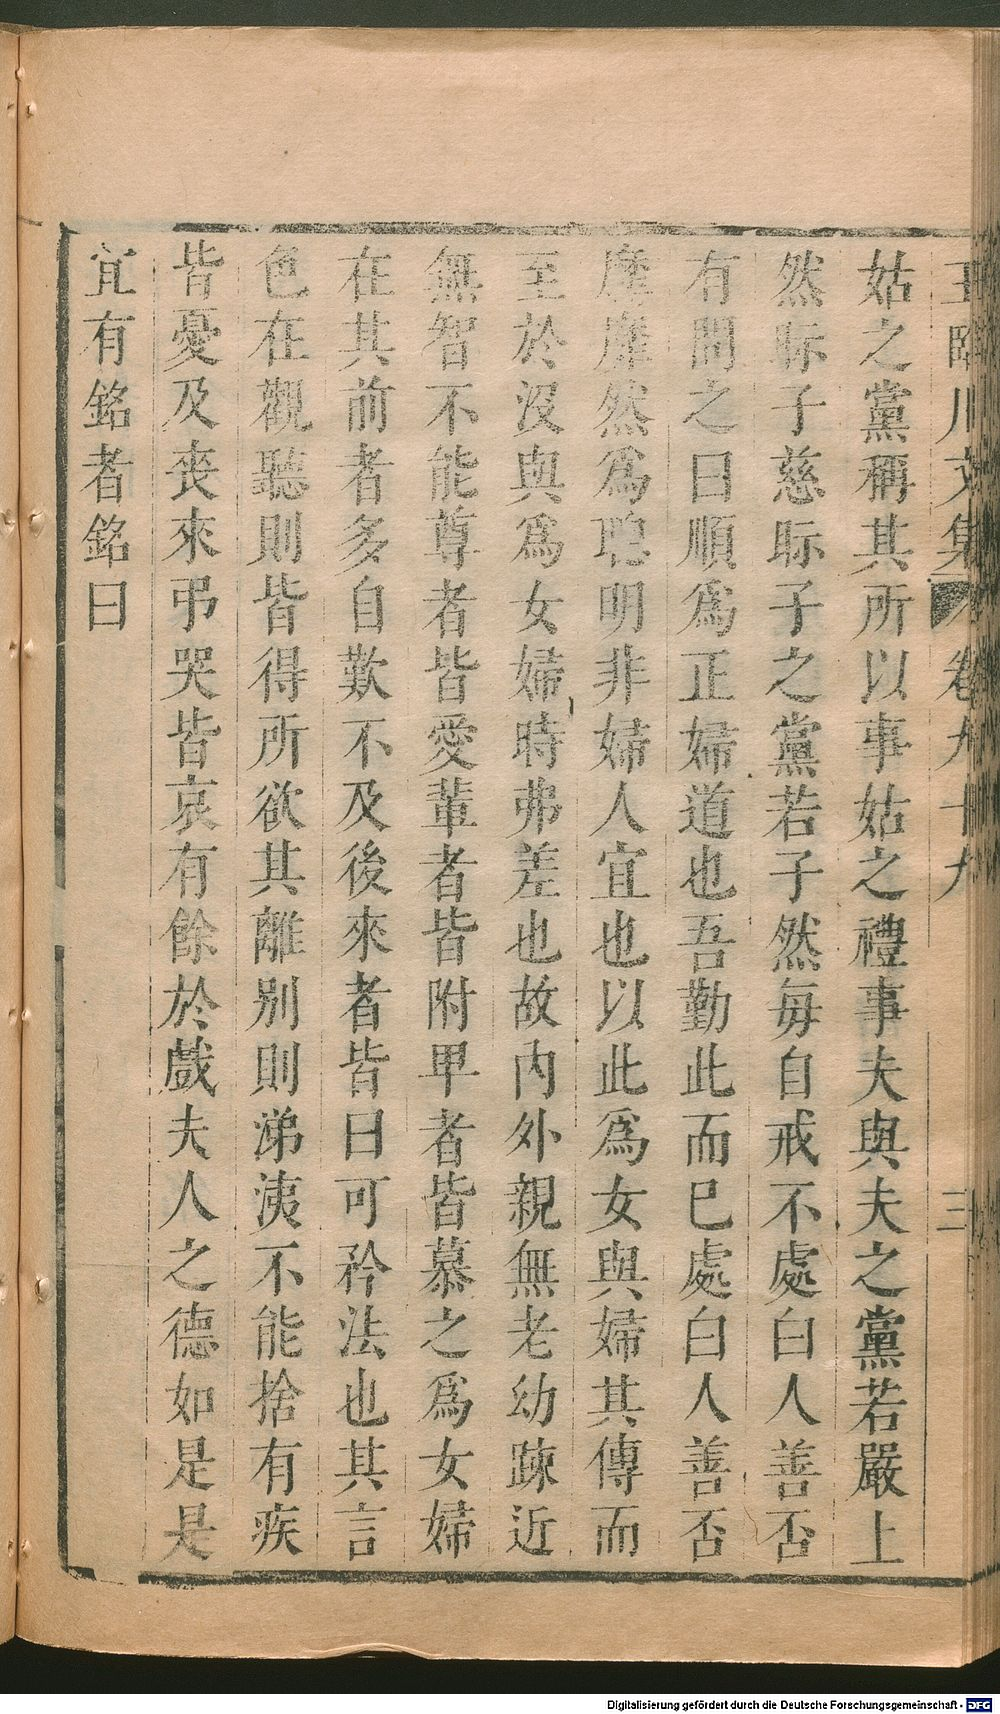 王臨川文集 卷九十九 三
姑之黨稱其所以事姑之禮事夫與夫之黨若嚴上
然眎子慈眎子之黨若子然每自戒不處白人善否
有問之曰順爲正婦道也吾勤此而已處白人善否
靡靡然爲聰明非婦人宜也以此爲女與婦其傳而
至於沒與爲女婦時弗差也故內外親無老幼疎近
無智不能尊者皆愛輩者皆附卑者皆慕之爲女婦
在其前者多自歎不及後來者皆曰可矜法也其言
色在觀聽則皆得所欲其離別則涕洟不能捨有疾
皆憂及喪來弔哭皆哀有餘於戲夫人之德如是是
宜有銘者銘曰
Digitalisierung gefördert durch die Deutsche Forschungsgemeinschaft - DFG